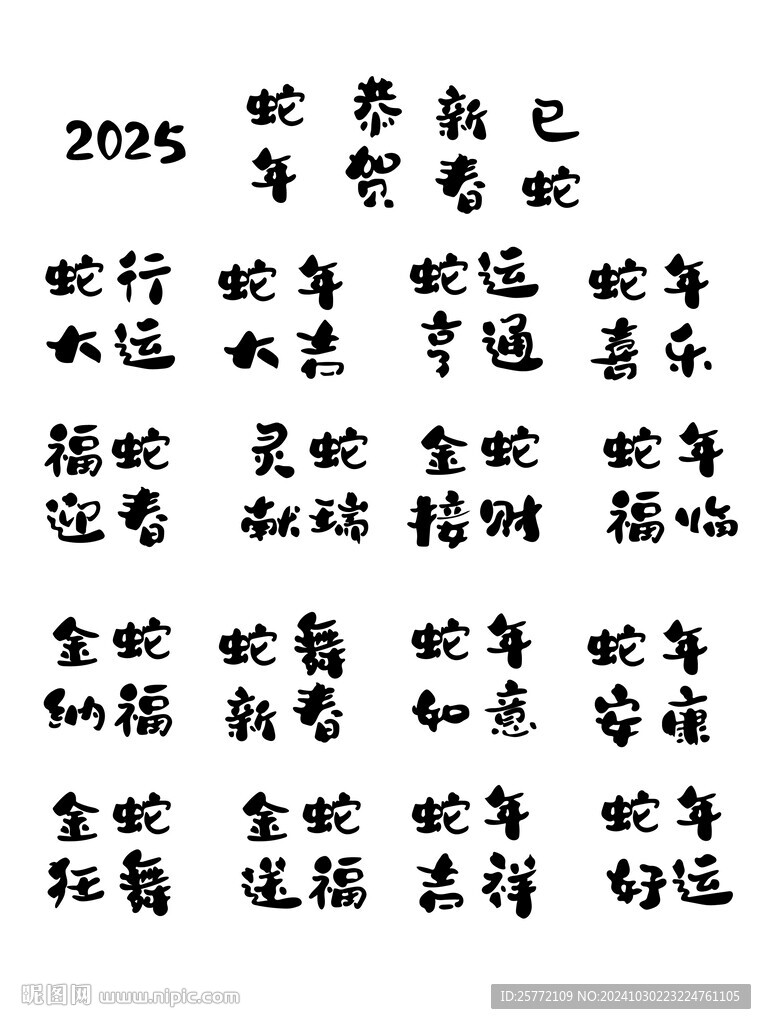 2025
蛇年
恭贺
新春
已蛇
蛇行
大运
蛇年
大吉
蛇运
亨通
蛇年
喜乐
福蛇
迎春
灵蛇
献瑞
金蛇
接财
蛇年
福临
金蛇
纳福
蛇舞
新春
蛇年
如意
蛇年
安康
金蛇
狂舞
金蛇
送福
蛇年
吉祥
蛇年
好运
昵图网 www.nipic.com
ID:25772109 NO:20241030223224761105